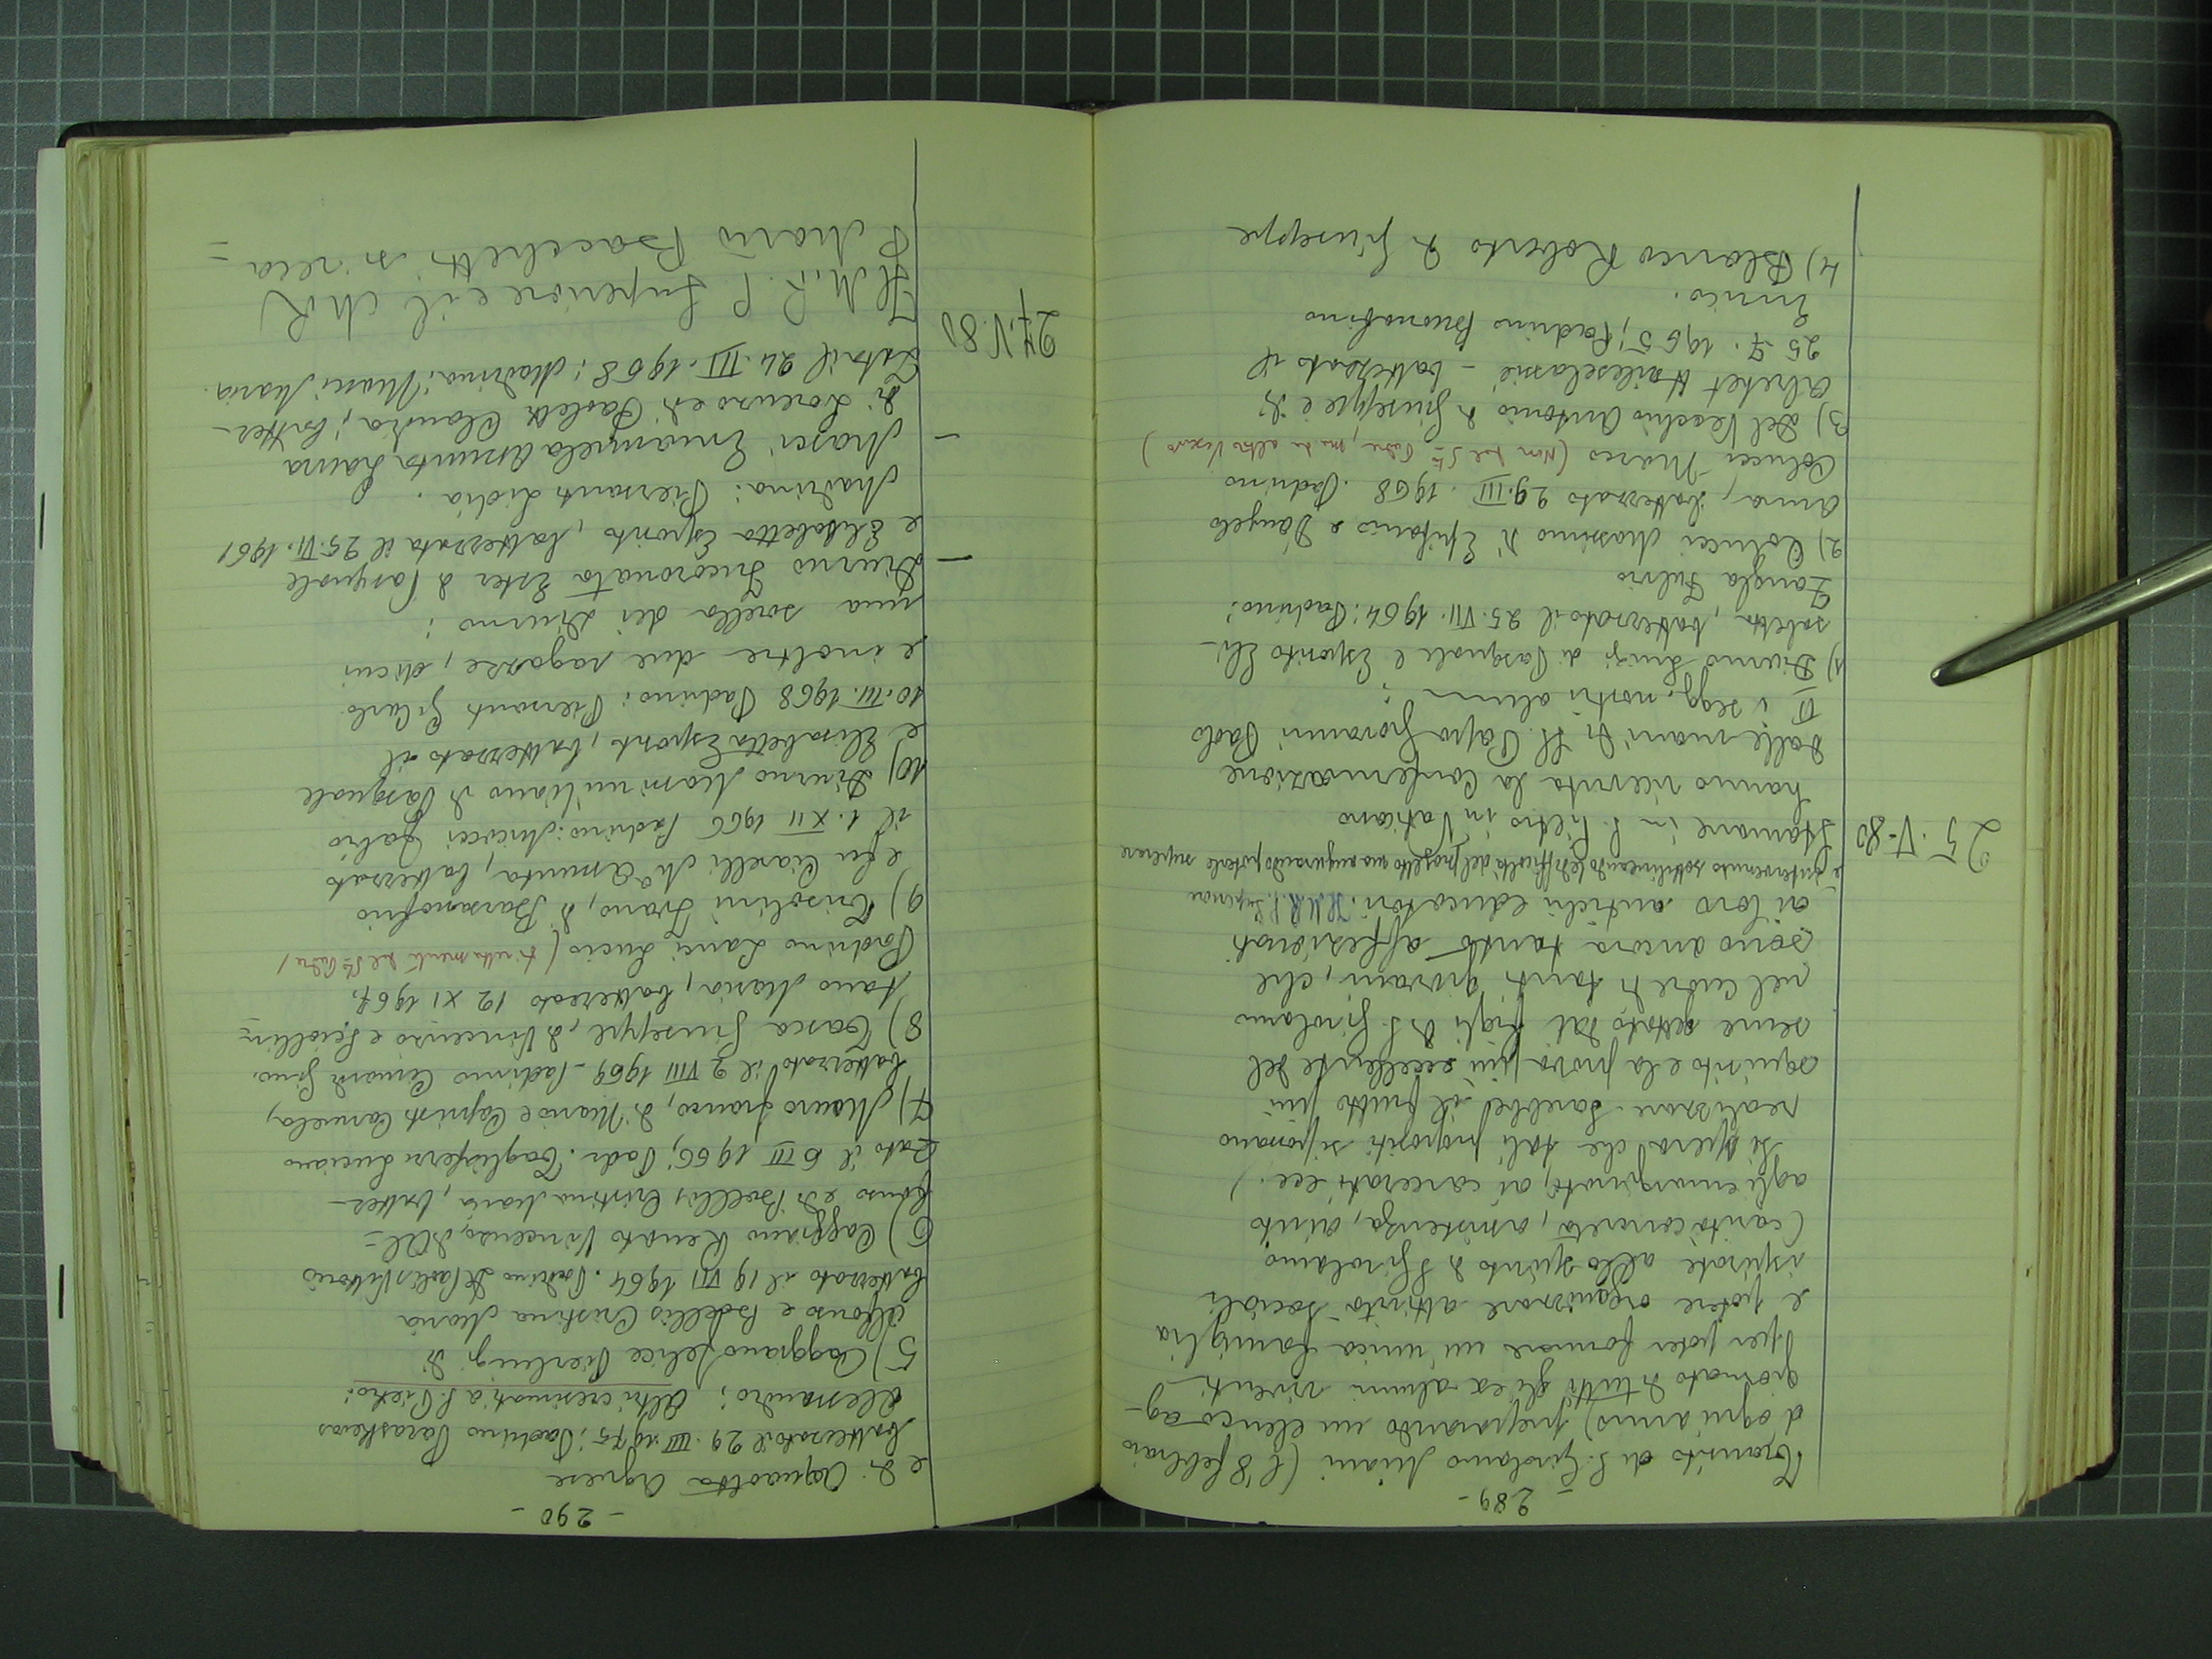 - 289 -
Transito di S. Girolamo Miani (l'8 febbraio
d'ogni anno) preparando un elenco ag-
giornato di tutti gli ex alunni viventi
per poter formare un'unica famiglia
e potere organizzare attività sociali
ispirate allo spirito di S. Girolamo
(carità concreta, assistenza, aiuto
agli emarginati, ai carcerati ecc.)
Si spera che tali propositi si possano
realizzare. Sarebbe il frutto più
squisito e la prova più eccellente del
seme gettato dai figli di S. Girolamo
nel cuore di tanti giovani, che
sono ancora tanto affezionati
ai loro antichi educatori. Il M.R.P. Superiore
è intervenuto sottolineando le difficoltà del progetto ma augurando poterle superare
25. V-80
Stamane in S. Pietro in Vaticano
hanno ricevuto la Confermazione
dalle mani di S.S. Papa Giovanni Paolo
II i segg. nostri alunni:
1) Diurno Luigi di Pasquale e Esposito Eli-
sabetta, battezzato il 25. VII. 1964: Padrino:
Zangla Fulvio
2) Colucci Massimo di Epifanio e D'angelo
Anna, battezzato 29. III. 1968. Padrino
Colucci Marco (Non dal Sto Padre, ma da altro Vescovo)
3) Del Vecchio Antonio di Giuseppe e di
Abrehet Haileselassiè - battezzato il
25. 7. 1965; Padrino Buonafino
Ennio.
4) Blanco Roberto di Giuseppe
- 290 -
e di Acquaotta Agnese
battezzato il 29. III. 1975; Padrino Paraskevas
Alessandro; Altri cresimati a S. Pietro:
5) Caggiano Felice Pierluigi di
Alfonso e Bellis Cristina Maria
battezzato il 19 VII 1964. Padrino De Paolis Vittorio
6) Caggiano Renato Vincenzo, di Al-
fonso e di Bellis Cristina Maria, battez-
zato il 6 III 1966; Padr. Tagliaferri Luciano
7) Mauro Franco, di Mario e Capristi Carmela,
battezzato il 2 VIII 1969 - Padrino Gino.
8) Tasca Giuseppe, di Vincenzo e
Maria, battezzato 12 XI 1967.
Padrino Lanci Lucio (direttamente dal Sto Padre)
9) Trisolini Ivano, di Barsanofrio
e fu Ciarelli Ma Assunta, battezzato
il 1. XII 1966 Padrino: Micocci Fabio
10) Diurno Massimiliano di Pasquale
e Elisabetta Esposito, battezzato il
10. III. 1968 Padrino: Piersanti G. Carlo.
e inoltre due ragazze, di cui
una sorella dei Diurno:
— Diurno Incoronata Ester di Pasquale
e Elisabetta Esposito, battezzata il 25. VI. 1961
Madrina: Piersanti Lidia.
— Masci Emanuela Assunta Laura
di Lorenzo e di Paoletti Claudia; battez-
zata il 24. III. 1968: Madrina: Masci Maria.
27. V. 80
Il M. R. P. Superiore e il M R
P Mario Bacchetti si reca-